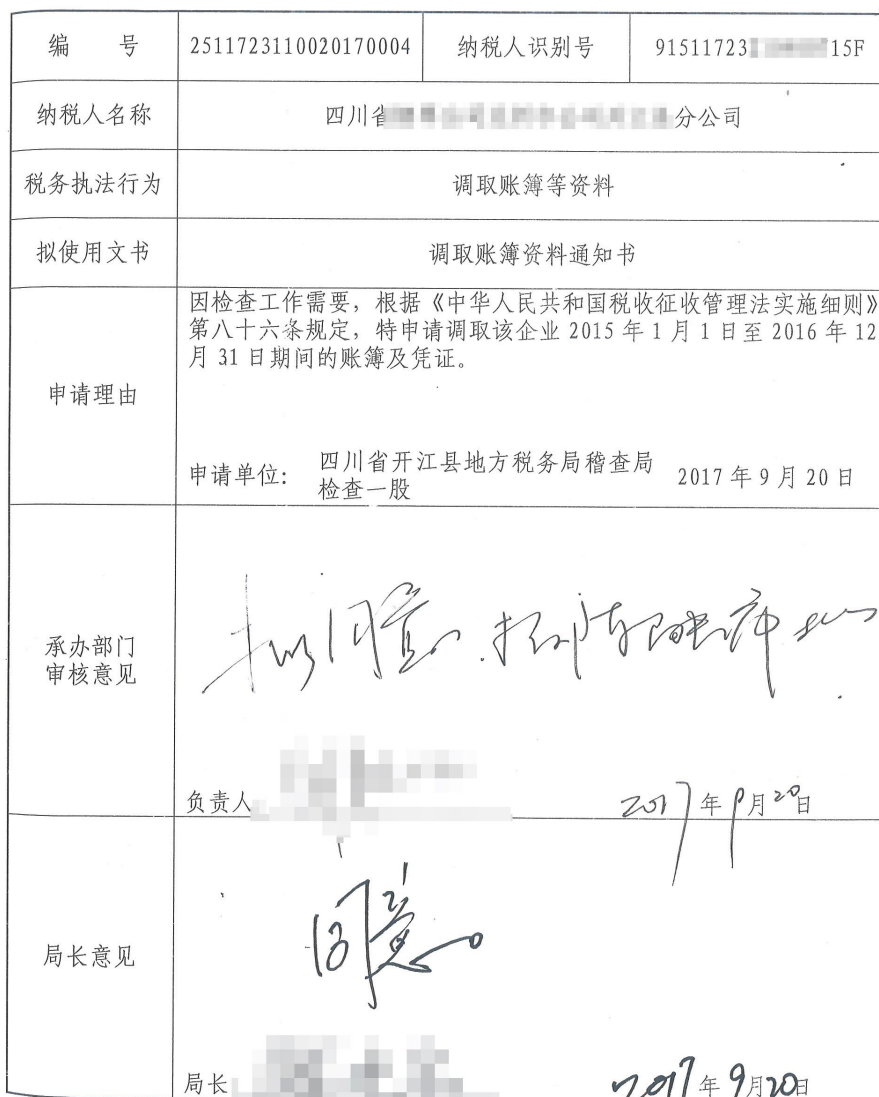 编 号 2511723110020170004 纳税人识别号 91511723 15F
纳税人名称 四川省 分公司
税务执法行为 调取账簿等资料
拟使用文书 调取账簿资料通知书
因检查工作需要，根据《中华人民共和国税收征收管理法实施细则》
第八十六条规定，特申请调取该企业 2015 年 1 月 1 日至 2016 年 12
月 31 日期间的账簿及凭证。
申请理由
申请单位： 四川省开江县地方税务局稽查局
检查一股 2017 年 9 月 20 日
承办部门
审核意见
拟同意
负责人 2017 年 9 月 20 日
局长意见
同意。
局长 2017 年 9 月 20 日